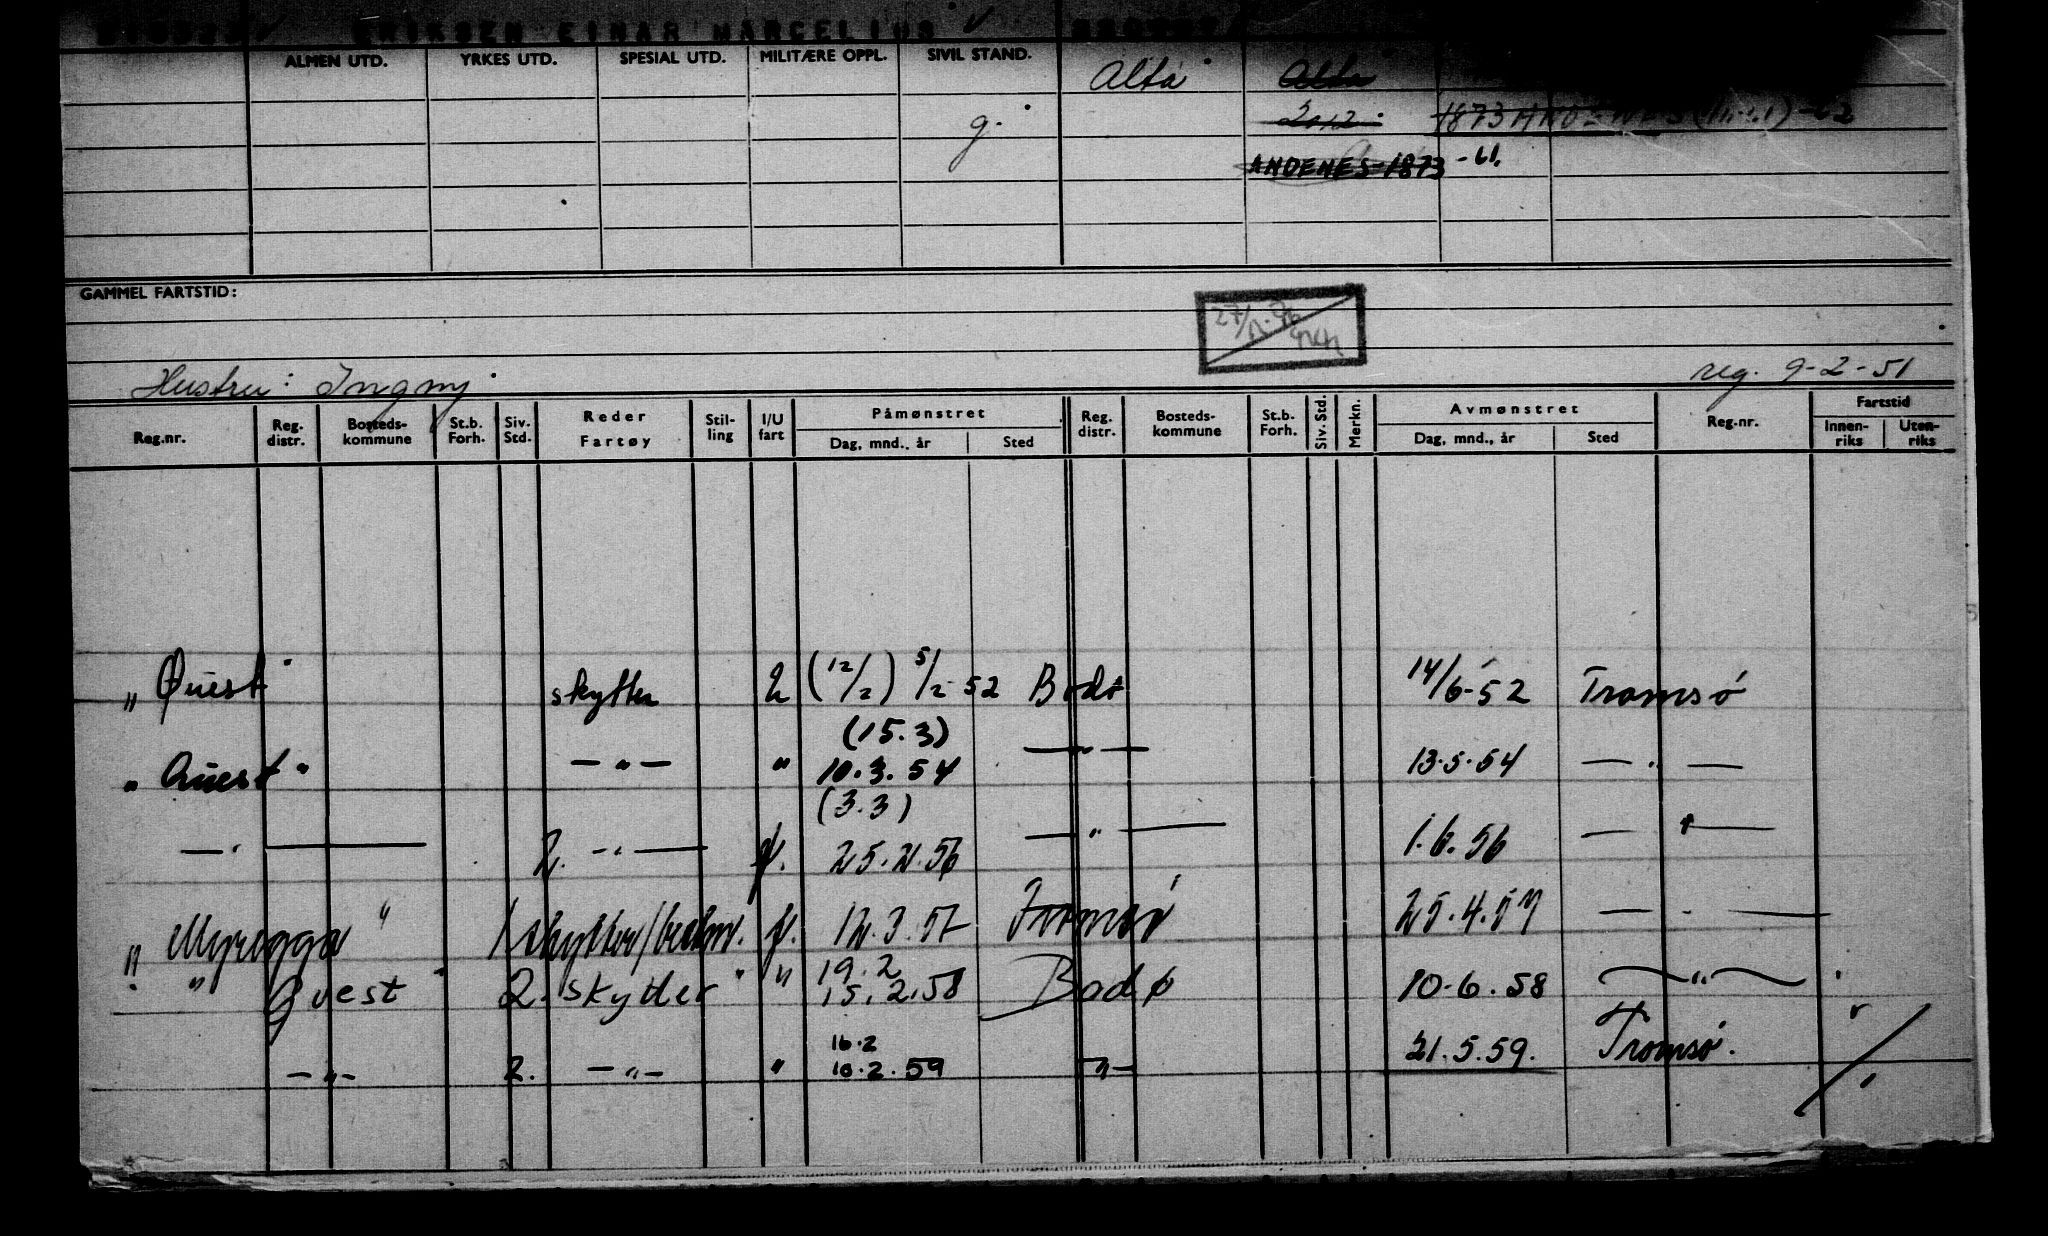 ERIKSEN EINAR MARCELIUS
ALMEN UTD. YRKES UTD. SPESIAL UTD. MILITÆRE OPPL. SIVIL STAND.
Alta Alta
g. 2012 1873 ANDENES -62
ANDENES-1873 -61.
GAMMEL FARTSTID:
27/
Hustru: Ingmy reg. 9-2-51
Reg.nr. Reg. distr. Bosteds-kommune St.b. Forh. Siv. Std. Reder Fartøy Stil-ling I/U fart Påmønstret Dag, mnd., år Sted Reg. distr. Bosteds-kommune St.b. Forh. Siv. Std. Merkn. Avmønstret Dag, mnd., år Sted Reg.nr. Fartstid Innen-riks Uten-riks
„ Quest" skytter U (12/2) 5/2-52 Bodø 14/6-52 Tromsø
(15.3)
„ Quest " — " — " 10.3.54 — " — 13.5.54 — " —
(3.3)
— " — 2. — " — f. 25.2.56 — " — 1.6.56 — " —
„ Myregga " 1 skytter/ f. 12.3.57 Tromsø 25.4.57 — " —
19.2
" Quest " 2. skytter " " 15.2.58 Bodø 10.6.58 — " —
16.2
— " — 2. — " — " 10.2.59 — " — 21.5.59. Tromsø.